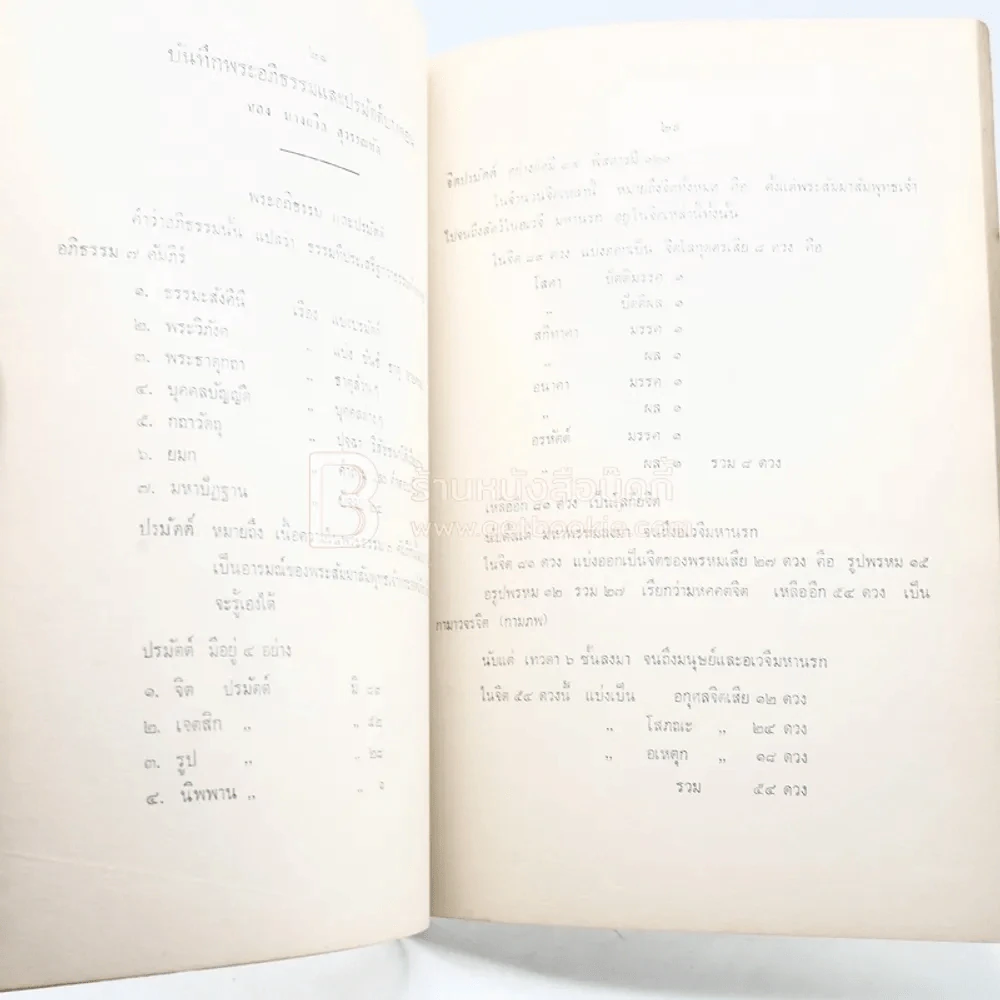 ๒๘
บันทึกพระอภิธรรมและปรมัตถ์บางตอน
ของ
พระอภิธรรม และปรมัตถ์
คำว่าอภิธรรมนั้น แปลว่า
อภิธรรม ๗ คัมภีร์
๑. ธรรมะสังคินี เรื่อง แบ่งปรมัตถ์
๒. พระวิภังค์ " แบ่ง ขันธ์ ธาตุ
๓. พระธาตุกถา " ธาตุล้วนๆ
๔. บุคคลบัญญัติ " บุคคลต่างๆ
๕. กถาวัตถุ "
๖. ยมก "
๗. มหาปัฏฐาน "
ปรมัตถ์ หมายถึง
เป็นอารมณ์ของพระสัมมาสัมพุทธเจ้า
จะรู้เองได้
ปรมัตถ์ มีอยู่ ๔ อย่าง
๑. จิต ปรมัตถ์ มี ๘๙
๒. เจตสิก " " ๕๒
๓. รูป " " ๒๘
๔. นิพพาน " " ๑
๒๙
จิตปรมัตถ์ อย่างย่อมี ๘๙ พิสดารมี ๑๒๑
ในจำนวนจิตเหล่านี้ หมายถึงจิตทั้งหมด คือ ตั้งแต่พระสัมมาสัมพุทธเจ้า
ไปจนถึงสัตว์ในอเวจี มหานรก อยู่ในจิตเหล่านี้ทั้งนั้น
ในจิต ๘๙ ดวง แบ่งออกเป็น จิตโลกุตตรเสีย ๘ ดวง คือ
โสดา ปัตติมรรค ๑
" ปัตติผล ๑
สกิทาคา มรรค ๑
" ผล ๑
อนาคา มรรค ๑
" ผล ๑
อรหัตต์ มรรค ๑
ผล ๑ รวม ๘ ดวง
ร้านหนังสือบุ๊คกี้
www.getbookie.com
เหลืออีก ๘๑ ดวง เป็นโลกียจิต
นับตั้งแต่ มหาพรหมลงมา จนถึงอเวจีมหานรก
ในจิต ๘๑ ดวง แบ่งออกเป็นจิตของพรหมเสีย ๒๗ ดวง คือ รูปพรหม ๑๕
อรูปพรหม ๑๒ รวม ๒๗ เรียกว่ามหคคตจิต เหลืออีก ๕๔ ดวง เป็น
กามาวจรจิต (กามภพ)
นับแต่ เทวดา ๖ ชั้นลงมา จนถึงมนุษย์และอเวจีมหานรก
ในจิต ๕๔ ดวงนี้ แบ่งเป็น อกุศลจิตเสีย ๑๒ ดวง
" โสภณะ " ๒๔ ดวง
" อเหตุก " ๑๘ ดวง
รวม ๕๔ ดวง